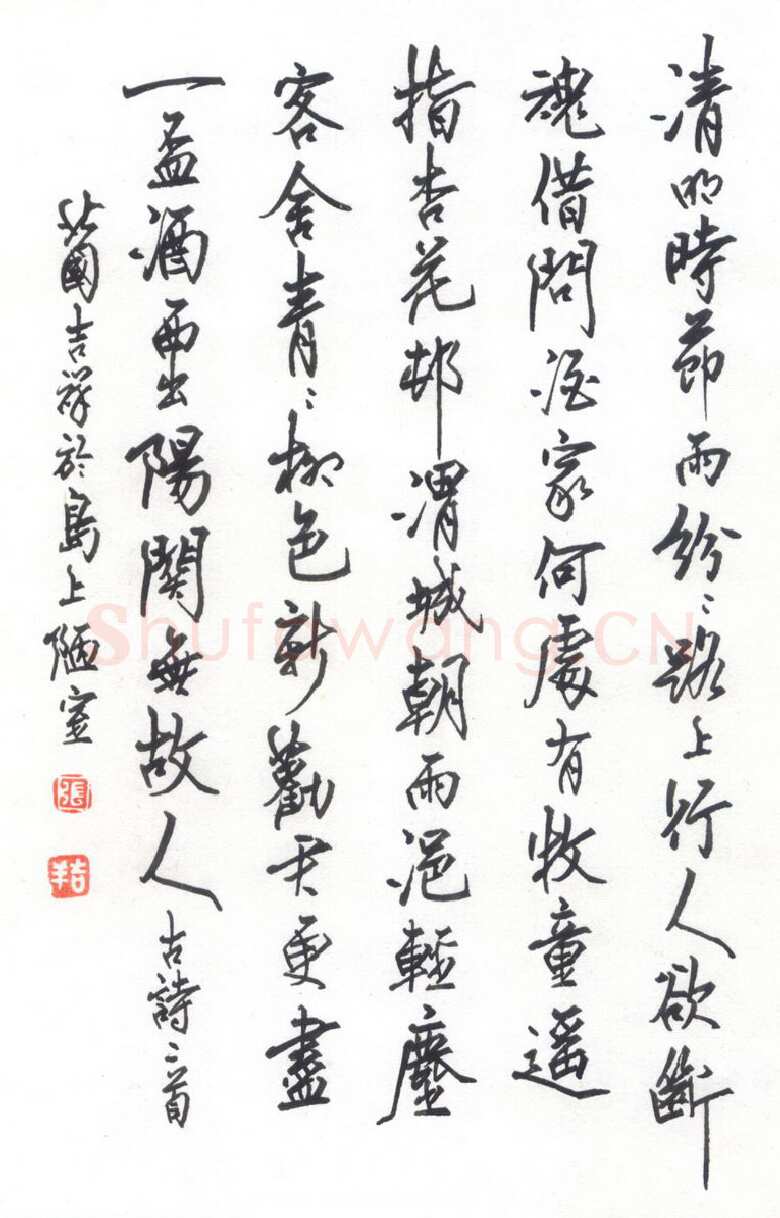 清明時節雨紛〻路上行人欲斷
魂借問酒家何處有牧童遥
指杏花邨渭城朝雨浥輕塵
客舍青〻柳色新勸君更盡
一盃酒西出陽關無故人古詩二首
北國吉祥於島上陋室
張
吉羊
Shufawang.CN